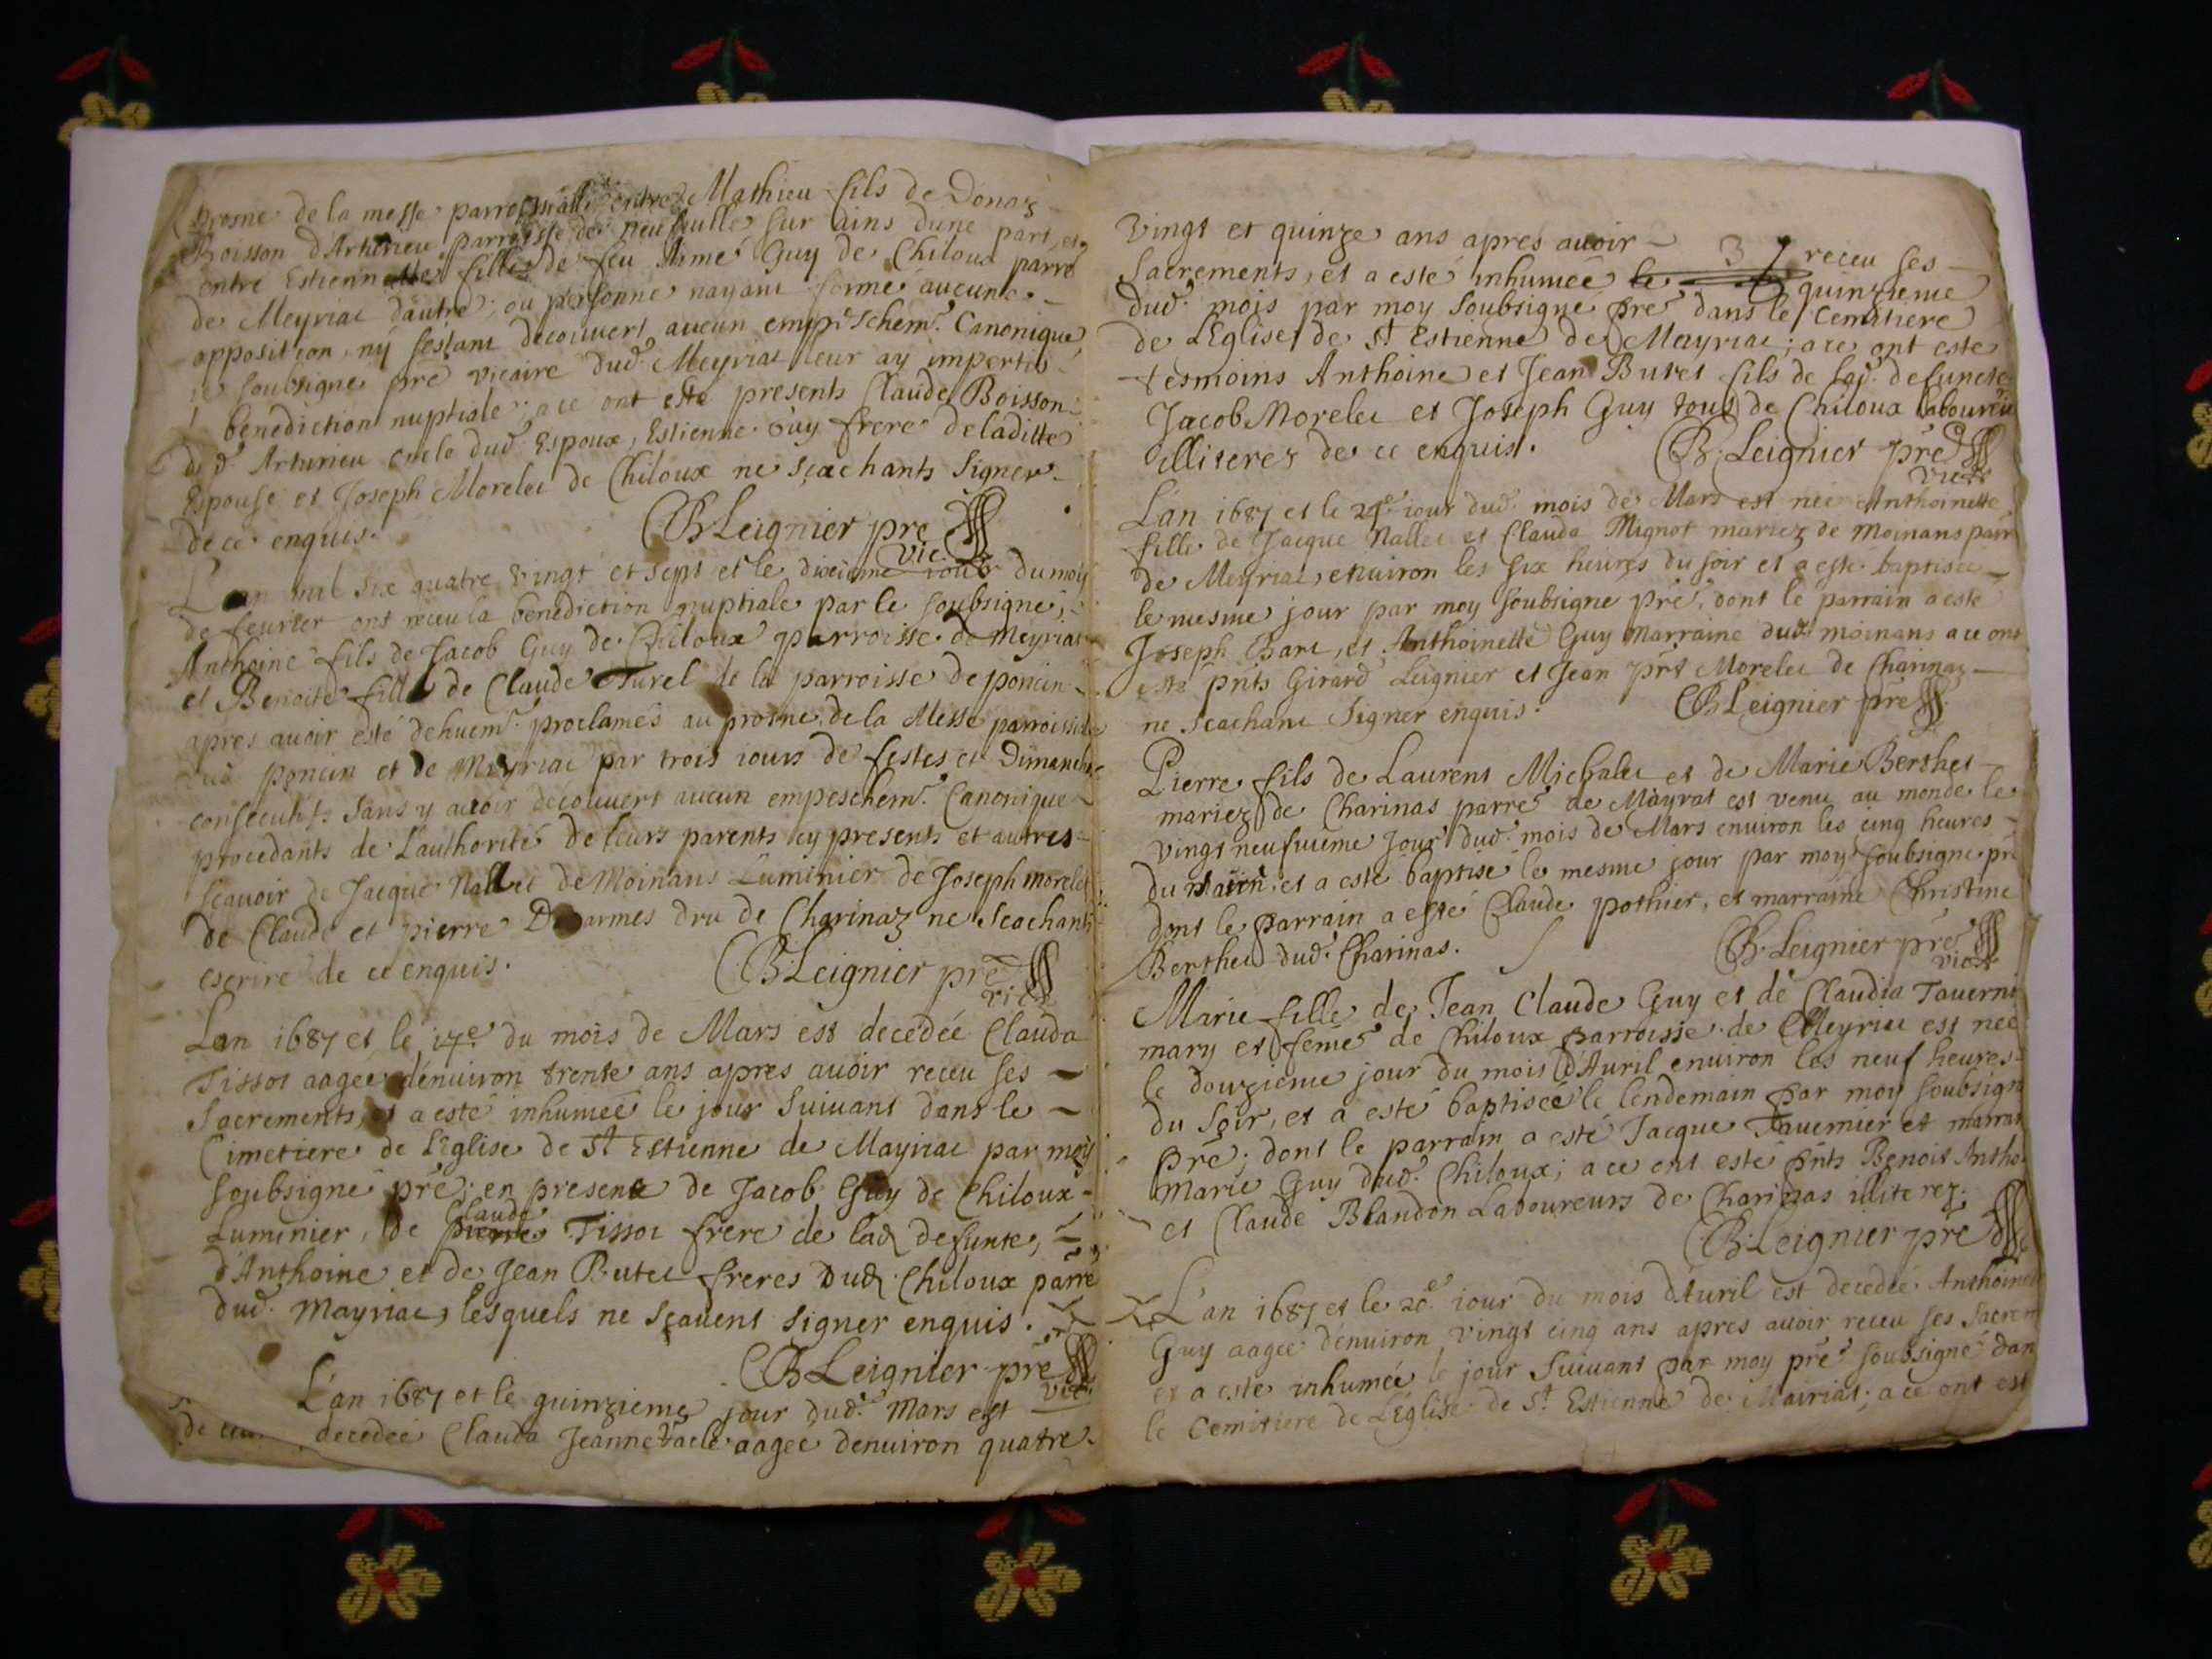 prosne de la messe parrossialle entre Mathieu fils de Donaz
Boisson d'Arturieu parroisse de neufville sur ains dune part, et
entre Estiennette fille de feu Aimé Guy de Chiloux parre
de Meyriac dautre; ou personne nayant formé aucune
opposition, ny sestant decouvert aucun empeschemt. Canonique
ie soubsigné pre vicaire dud. Meyriat leur ay imperti
benediction nuptiale; a ce ont esté presents Claude Boisson
dud. Arturieu oncle dud. Espoux, Estienne Guy frere de laditte
Espouse et Joseph Morelet de Chiloux ne sçachants signer
de ce enquis.
CB Leignier pre
vic.
L'an mil six quatre vingt et sept et le dixieme iour du mois
de feurier ont receu la benediction nuptiale par le soubsigné,
Anthoine fils de Jacob Guy de Chiloux parroisse de Meyriat
et Benoite fille de Claude Turel de la parroisse de poncin
apres auoir esté dehuemt. proclamés au prosne de la Messe parroissiale
dud poncin et de Meyriac par trois iours de festes et Dimanche
consecutifs sans y auoir decouuert aucun empeschemt. Canonique
procedants de L'authorité de leurs parents icy presents et autres
sçauoir de Jacque Nallet de Moinans Luminier de Joseph morelet
de Claude et pierre Desarmes dru de Charinaz ne Scachants
escrire de ce enquis.
CB Leignier pre
vic.
Lan 1687 et le 17e. du mois de Mars est decedée Clauda
Tissot aagee dénuiron trente ans apres auoir receu ses
Sacrements, et a esté inhumeé le jour suiuant dans le
Cimetiere de l'Eglise de St Estienne de Mayriac par moy
soubsigné pré; en presence de Jacob Guy de Chiloux
Luminier, de pierre Claude Tissot frere de lad defunte,
d'Anthoine et de Jean Butet freres dud Chiloux parre
dud. Mayriac, lesquels ne sçauent signer enquis.
CB Leignier pre
vic.
L'an 1687 et le quinzieme jour dud. Mars est
decedée Clauda Jeannetacle aagee denuiron quatre
vingt et quinze ans apres auoir receu ses
3
Sacrements, et a esté inhumeé le quinzieme
dud. mois par moy soubsigné pre dans le Cemitiere
de l'Eglise de St Estienne de Mayriac; a ce ont esté
tesmoins Anthoine et Jean Butet fils de lad. defuncte
Jacob Morelet et Joseph Guy tous de Chiloux laboureurs
illiterez de ce enquis.
CB. Leignier pre
vicre
L'an 1687 et le 24e iour dud. mois de Mars est née Anthoinette
fille de Jacque Nallet et Clauda Mignot mariez de Moinans parr
de Meyriac, enuiron les six heures du soir et a esté baptisée
le mesme jour par moy soubsigné pré, dont le parrain a esté
Joseph Bart, et Anthoinette Guy marraine dud. moinans a ce ont
esté pnts Girard Leignier et Jean pre Morelet de Charinaz
ne Scachant signer enquis.
CB Leignier pre
Pierre fils de Laurent Michalet et de Marie Berthet
mariez de Charinas parre de Mayrat est venu au monde le
vingt neufuieme Jour dud. mois de Mars enuiron les cinq heures
du matin, et a esté baptisé le mesme jour par moy soubsigné pre
dont le parrain a esté Claude pothier, et marraine Christine
Berthet dud. Charinas.
CB. Leignier pre
vicre
Marie fille de Jean Claude Guy et de Claudia Tauerni
mary et femé de Chiloux parroisse de Meyriac est née
le douzieme jour du mois d'Auril enuiron les neuf heures
du soir, et a esté baptisée le lendemain par moy soubsigné
pré; dont le parrain a esté Jacque Tauernier et marrai
Marie Guy dud. Chiloux; a ce ont esté pnts Benoit Antho
et Claude Blandon Laboureurs de Charinas illiterez.
CB. Leignier pre
L'an 1687 et le 20e. iour du mois d'Auril est decedée Anthoinet
Guy aagee dénuiron vingt cinq ans apres auoir receu ses Sacrem
et a esté inhumée le jour suiuant par moy pré soubsigné dan
le Cemitiere de L'Eglise de St. Estienne de Mairiat; a ce ont est